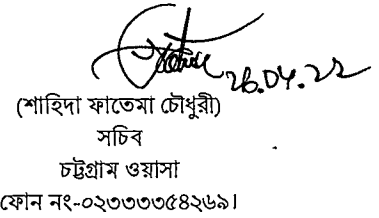 26.04.22
(শাহিদা ফাতেমা চৌধুরী)
সচিব
চট্টগ্রাম ওয়াসা
ফোন নং-০২৩৩৩৩৫৪২৬৯।